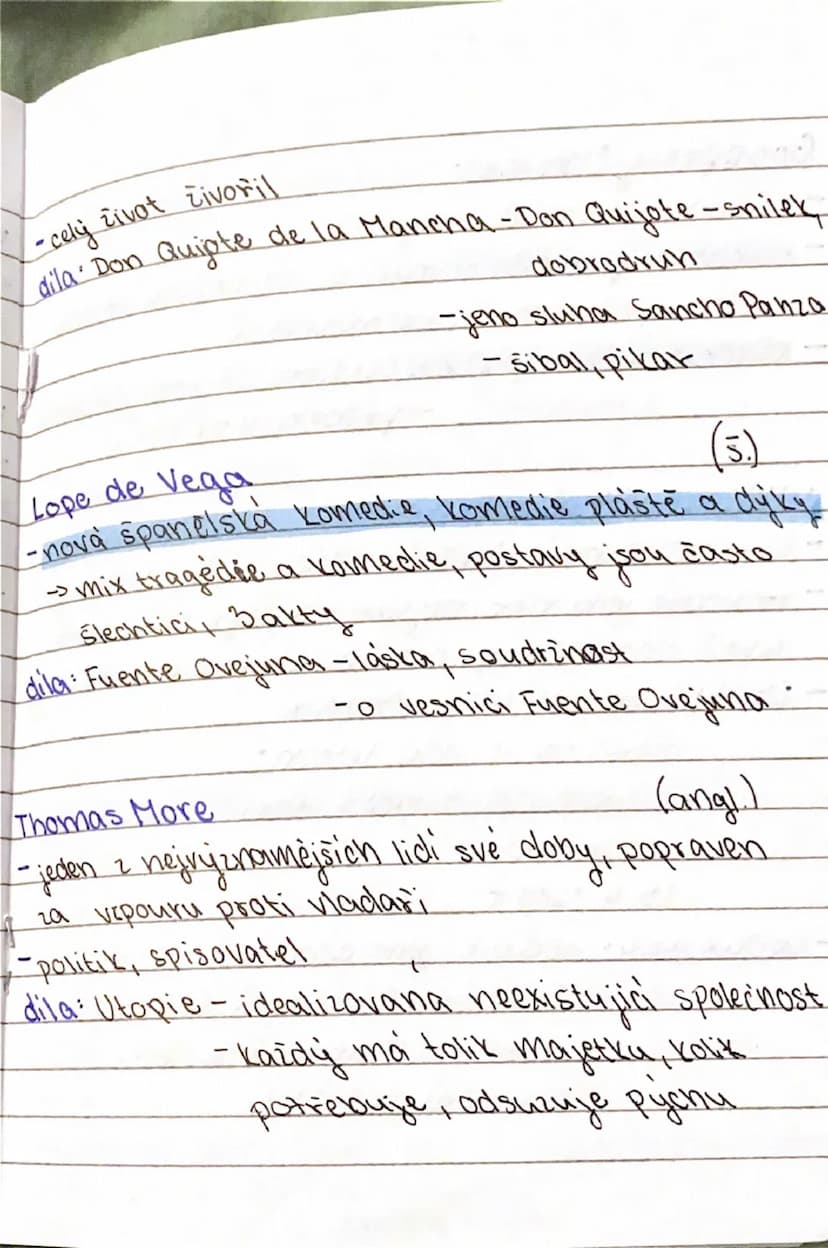 - celý život živořil
díla: Don Quijote de la Mancha - Don Quijote - snílek,
dobrodruh
- jeho sluha Sancho Panza
- šibal, pikar
Lope de Vega (š.)
- nová španělská komedie, komedie pláště a dýky
→ mix tragédie a komedie, postavy jsou často
šlechtici, 3 akty
díla: Fuente Ovejuna - láska, soudržnost
- o vesnici Fuente Ovejuna
Thomas More (angl.)
- jeden z nejvýznamějších lidí své doby, popraven
za vzpouru proti vladaři
- politik, spisovatel
díla: Utopie - idealizovaná neexistující společnost
- každý má tolik majetku, kolik
potřebuje, odsuzuje pýchu